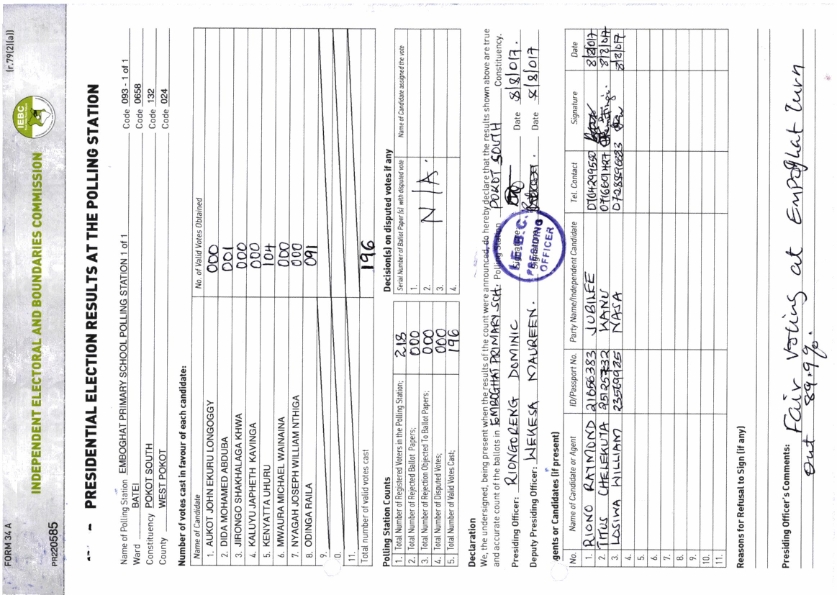 FORM 34 A
(r.79(2)(a))
IEBC
INDEPENDENT ELECTORAL AND BOUNDARIES COMMISSION
PR220585
PRESIDENTIAL ELECTION RESULTS AT THE POLLING STATION
Name of Polling Station EMBOGHAT PRIMARY SCHOOL POLLING STATION 1 of 1 Code 093 - 1 of 1
Ward BATEI Code 0658
Constituency POKOT SOUTH Code 132
County WEST POKOT Code 024
Number of votes cast in favour of each candidate:
Name of Candidate No. of Valid Votes Obtained
1. AUKOT JOHN EKURU LONGOGGY 000
2. DIDA MOHAMED ABDUBA 001
3. JIRONGO SHAKHALAGA KHWA 000
4. KALUYU JAPHETH KAVINGA 000
5. KENYATTA UHURU 104
6. MWAURA MICHAEL WAINAINA 000
7. NYAGAH JOSEPH WILLIAM NTHIGA 000
8. ODINGA RAILA 091
9.
0.
11.
Total number of valid votes cast 196
Polling Station Counts
1. Total Number of Registered Voters in the Polling Station; 218
2. Total Number of Rejected Ballot Papers; 000
3. Total Number of Rejection Objected To Ballot Papers; 000
4. Total Number of Disputed Votes; 000
5. Total Number of Valid Votes Cast; 196
Decision(s) on disputed votes if any
Serial Number of Ballot Paper (s) with disputed vote Name of Candidate assigned the vote
1.
2. N/A.
3.
4.
Declaration
We, the undersigned, being present when the results of the count were announced, do hereby declare that the results shown above are true
and accurate count of the ballots in EMBOGHAT PRIMARY SCH. Polling Station POKOT SOUTH Constituency.
Presiding Officer: RIONGORENG DOMINIC Date 8/8/017.
Deputy Presiding Officer: WEKESA MAUREEN. Date 8/8/017
I.E.B.C.
PRESIDING
OFFICER
gents or Candidates (if present)
No. Name of Candidate or Agent ID/Passport No. Party Name/Independent Candidate Tel. Contact Signature Date
1. RIONO RAYMOND JUBILEE 8/8/017
2. TITUS CHELEKUTA KANU 8/8/017
3. LOSIWA WILLIAM NASA 8/8/017
4.
5.
6.
7.
8.
9.
10.
11.
Reasons for Refusal to Sign (if any)
Presiding Officer's Comments: Fair voting at Empoghat turn
out 89.9%.